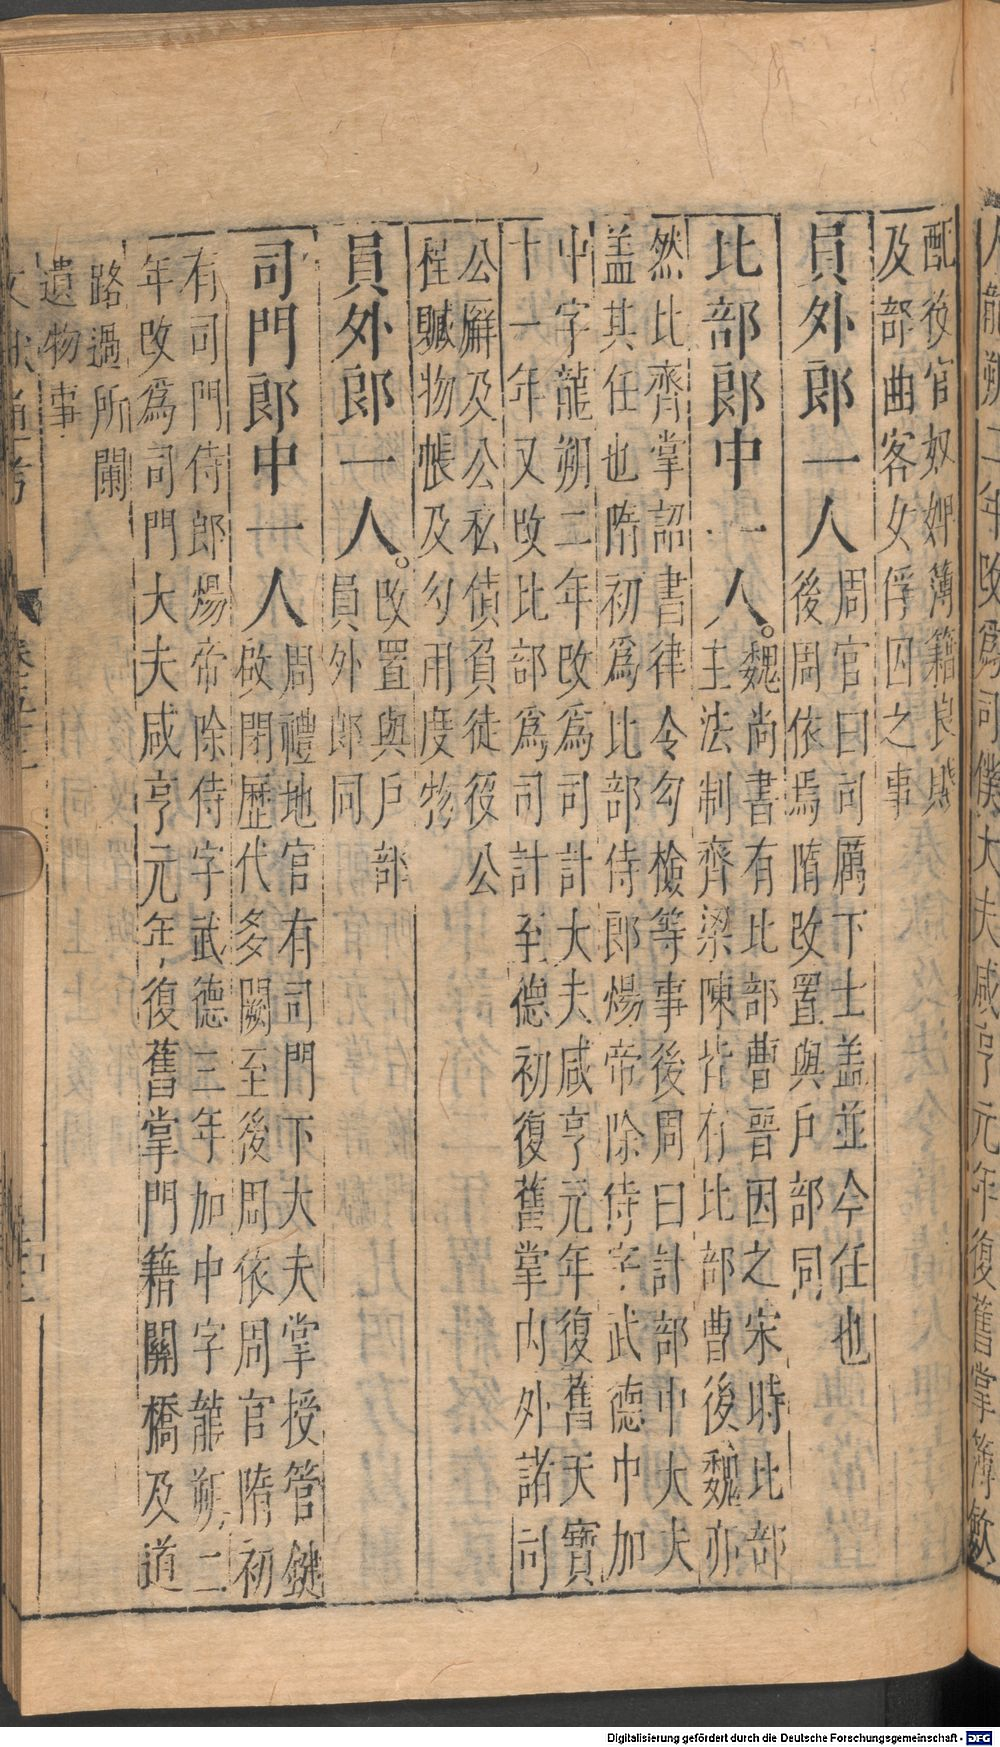 龍朔二年改爲司僕大夫咸亨元年復舊掌簿斂
配後官奴婢薄籍良賤
及部曲客女俘囚之事
員外郎一人
周官曰司厲下士盖並今任也
後周依焉隋改置與戶部同
比部郎中一人。
魏尚書有比部曹晉因之宋時比部
主法制齊梁陳皆有比部曹後魏亦
然比齊掌詔書律令勾檢等事後周曰計部中大夫
盖其任也隋初爲比部侍郎煬帝除侍字武德中加
中字龍朔二年改爲司計大夫咸亨元年復舊天寶
十一年又改比部爲司計至德初復舊掌内外諸司
公廨及公私債負徒役公
程贓物帳及勾用度物
員外郎一人。
改置與戶部
員外郎同
司門郎中一人
周禮地官有司門下大夫掌授管鍵
啟閉歷代多闕至後周依周官隋初
有司門侍郎煬帝除侍字武德三年加中字龍朔二
年改爲司門大夫咸亨元年復舊掌門籍關橋及道
路過所闌
遺物事
文獻通考
Digitalisierung gefördert durch die Deutsche Forschungsgemeinschaft - DFG